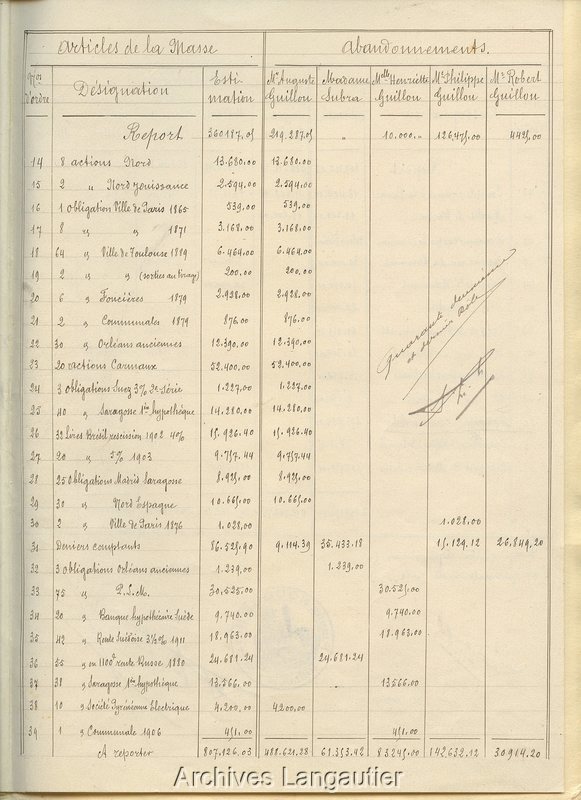 Articles de la Masse Abandonnements.
Nos d'ordre Désignation Estimation Mr Auguste Guillon Madame Subra Melle Henriette Guillon Mr Philippe Guillon Mr Robert Guillon
Report 360187.05 219.287.05 " 10.000." 126.475.00 4425.00
14 8 actions Nord 13.680.00 13.680.00
15 2 " Nord jouissance 2.594.00 2.594.00
16 1 Obligation Ville de Paris 1865 539.00 539.00
17 8 " " 1871 3.168.00 3.168.00
18 64 " Ville de Toulouse 1889 6.464.00 6.464.00
19 2 " " (sorties au tirage) 200.00 200.00
20 6 " Foncières 1879 2.928.00 2.928.00
21 2 " Communales 1879 876.00 876.00
22 30 " Orléans anciennes 12.390.00 12.390.00
23 20 actions Carmaux 52.400.00 52.400.00
24 3 obligations Suez 3% 2e Série 1.227.00 1.227.00
25 40 " Saragosse 1re hypothèque 14.280.00 14.280.00
26 32 Livres Brésil rescision 1902 4% 15.926.40 15.926.40
27 20 " 5% 1903 9.757.44 9.757.44
28 25 Obligations Madrid Saragosse 8.925.00 8.925.00
29 30 " Nord Espagne 10.665.00 10.665.00
30 2 " Ville de Paris 1876 1.028.00 1.028.00
31 Deniers comptants 86.525.90 9.114.39 35.433.18 15.129.12 26.849,20
32 3 obligations Orléans anciennes 1.239.00 1.239.00
33 75 " P.L.M. 30.525.00 30.525.00
34 20 " Banque hypothécaire Suède 9.740.00 9.740.00
35 42 " Rente Suédoise 3½% 1911 18.963.00 18.963.00
36 25 " en 1100f rente Russe 1880 24.681.24 24.681.24
37 38 " Saragosse 1re hypothèque 13.566.00 13566.00
38 10 " Société Pyrénéenne Electrique 4.200.00 4200.00
39 1 " Communale 1906 451.00 451.00
A reporter 807.126.03 488.621.28 61.353.42 83245.00 142632.12 30914.20
et dernier Rôle
Archives Langautier